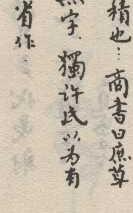 積也…商書曰庶草
無字．獨許氏以為有
省作